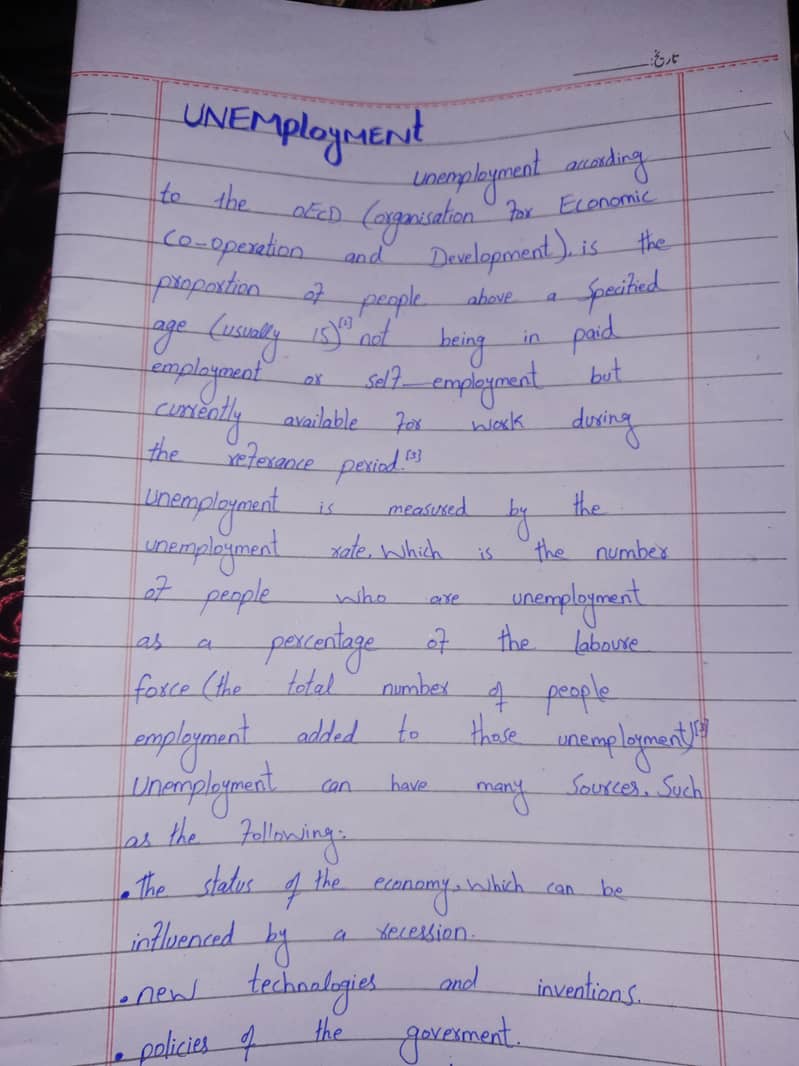 تاریخ:
UNEMployMENT
unemployment according
to the OECD (organisation for Economic
Co-operation and Development), is the
proportion of people above a Specified
age (usually 15)[2] not being in paid
employment or self-employment but
currently available for work during
the referance period.[3]
unemployment is measured by the
unemployment rate, which is the number
of people who are unemployment
as a percentage of the laboure
force (the total number of people
employment added to those unemployment)[3]
Unemployment can have many Sources, Such
as the following:
• The status of the economy, which can be
influenced by a recession.
• new technologies and inventions.
• policies of the goverment.